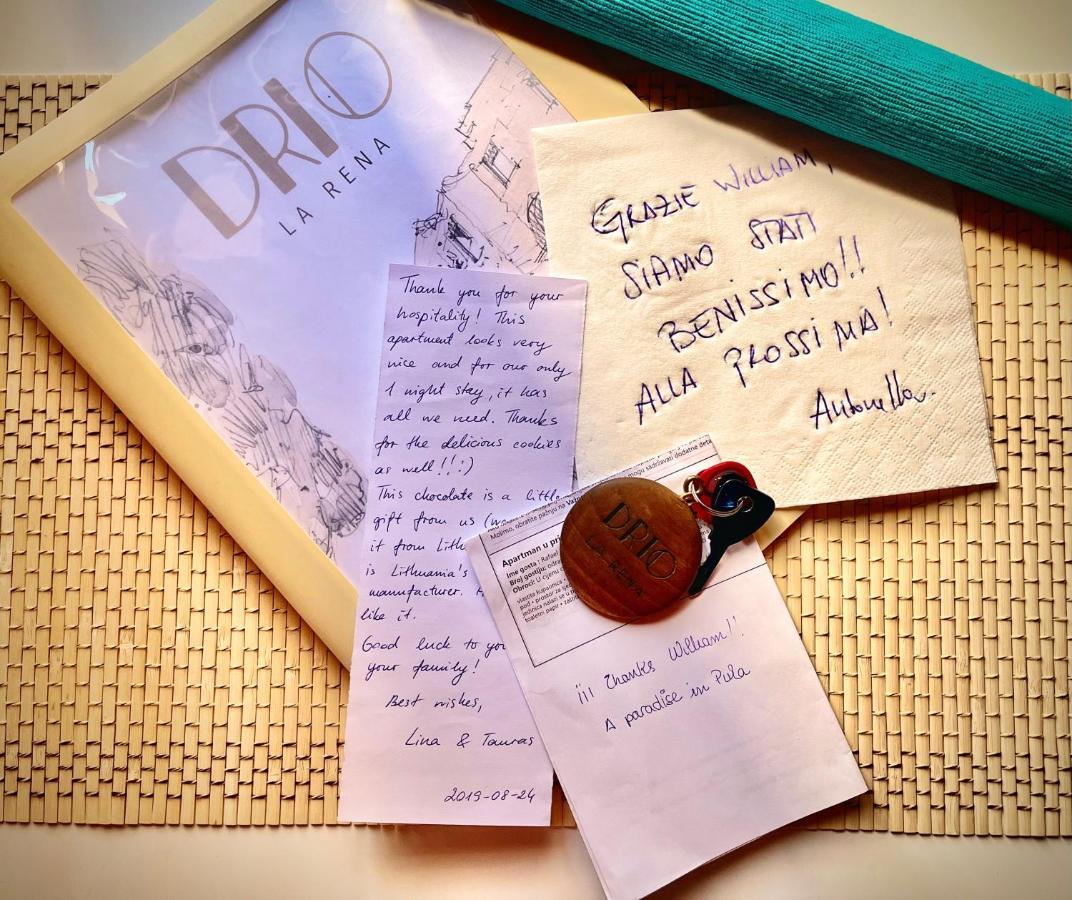 DRIO
LA RENA
GRAZIE WILLIAM,
SIAMO STATI
BENISSIMO!!
ALLA PROSSIMA!
Antonella.
Thank you for your
hospitality! This
apartment looks very
nice and for our only
1 night stay, it has
all we need. Thanks
for the delicious cookies
as well!!:)
This chocolate is a little
gift from us
it from
is Lithuania's
manufacturer.
like it.
Good luck to you
your family!
Best wishes,
Lina & Tauras
2019-08-24
mogu sadržavati dodatne
Molimo, obratite pažnju na
Apartman u
Ime gosta: Rafael
Broj gostiju:
Obroci: U cijenu
vlastita kupaonica •
toaletni papir •
DRIO
LA RENA
¡¡¡ Thanks William!!
A paradise in Pula